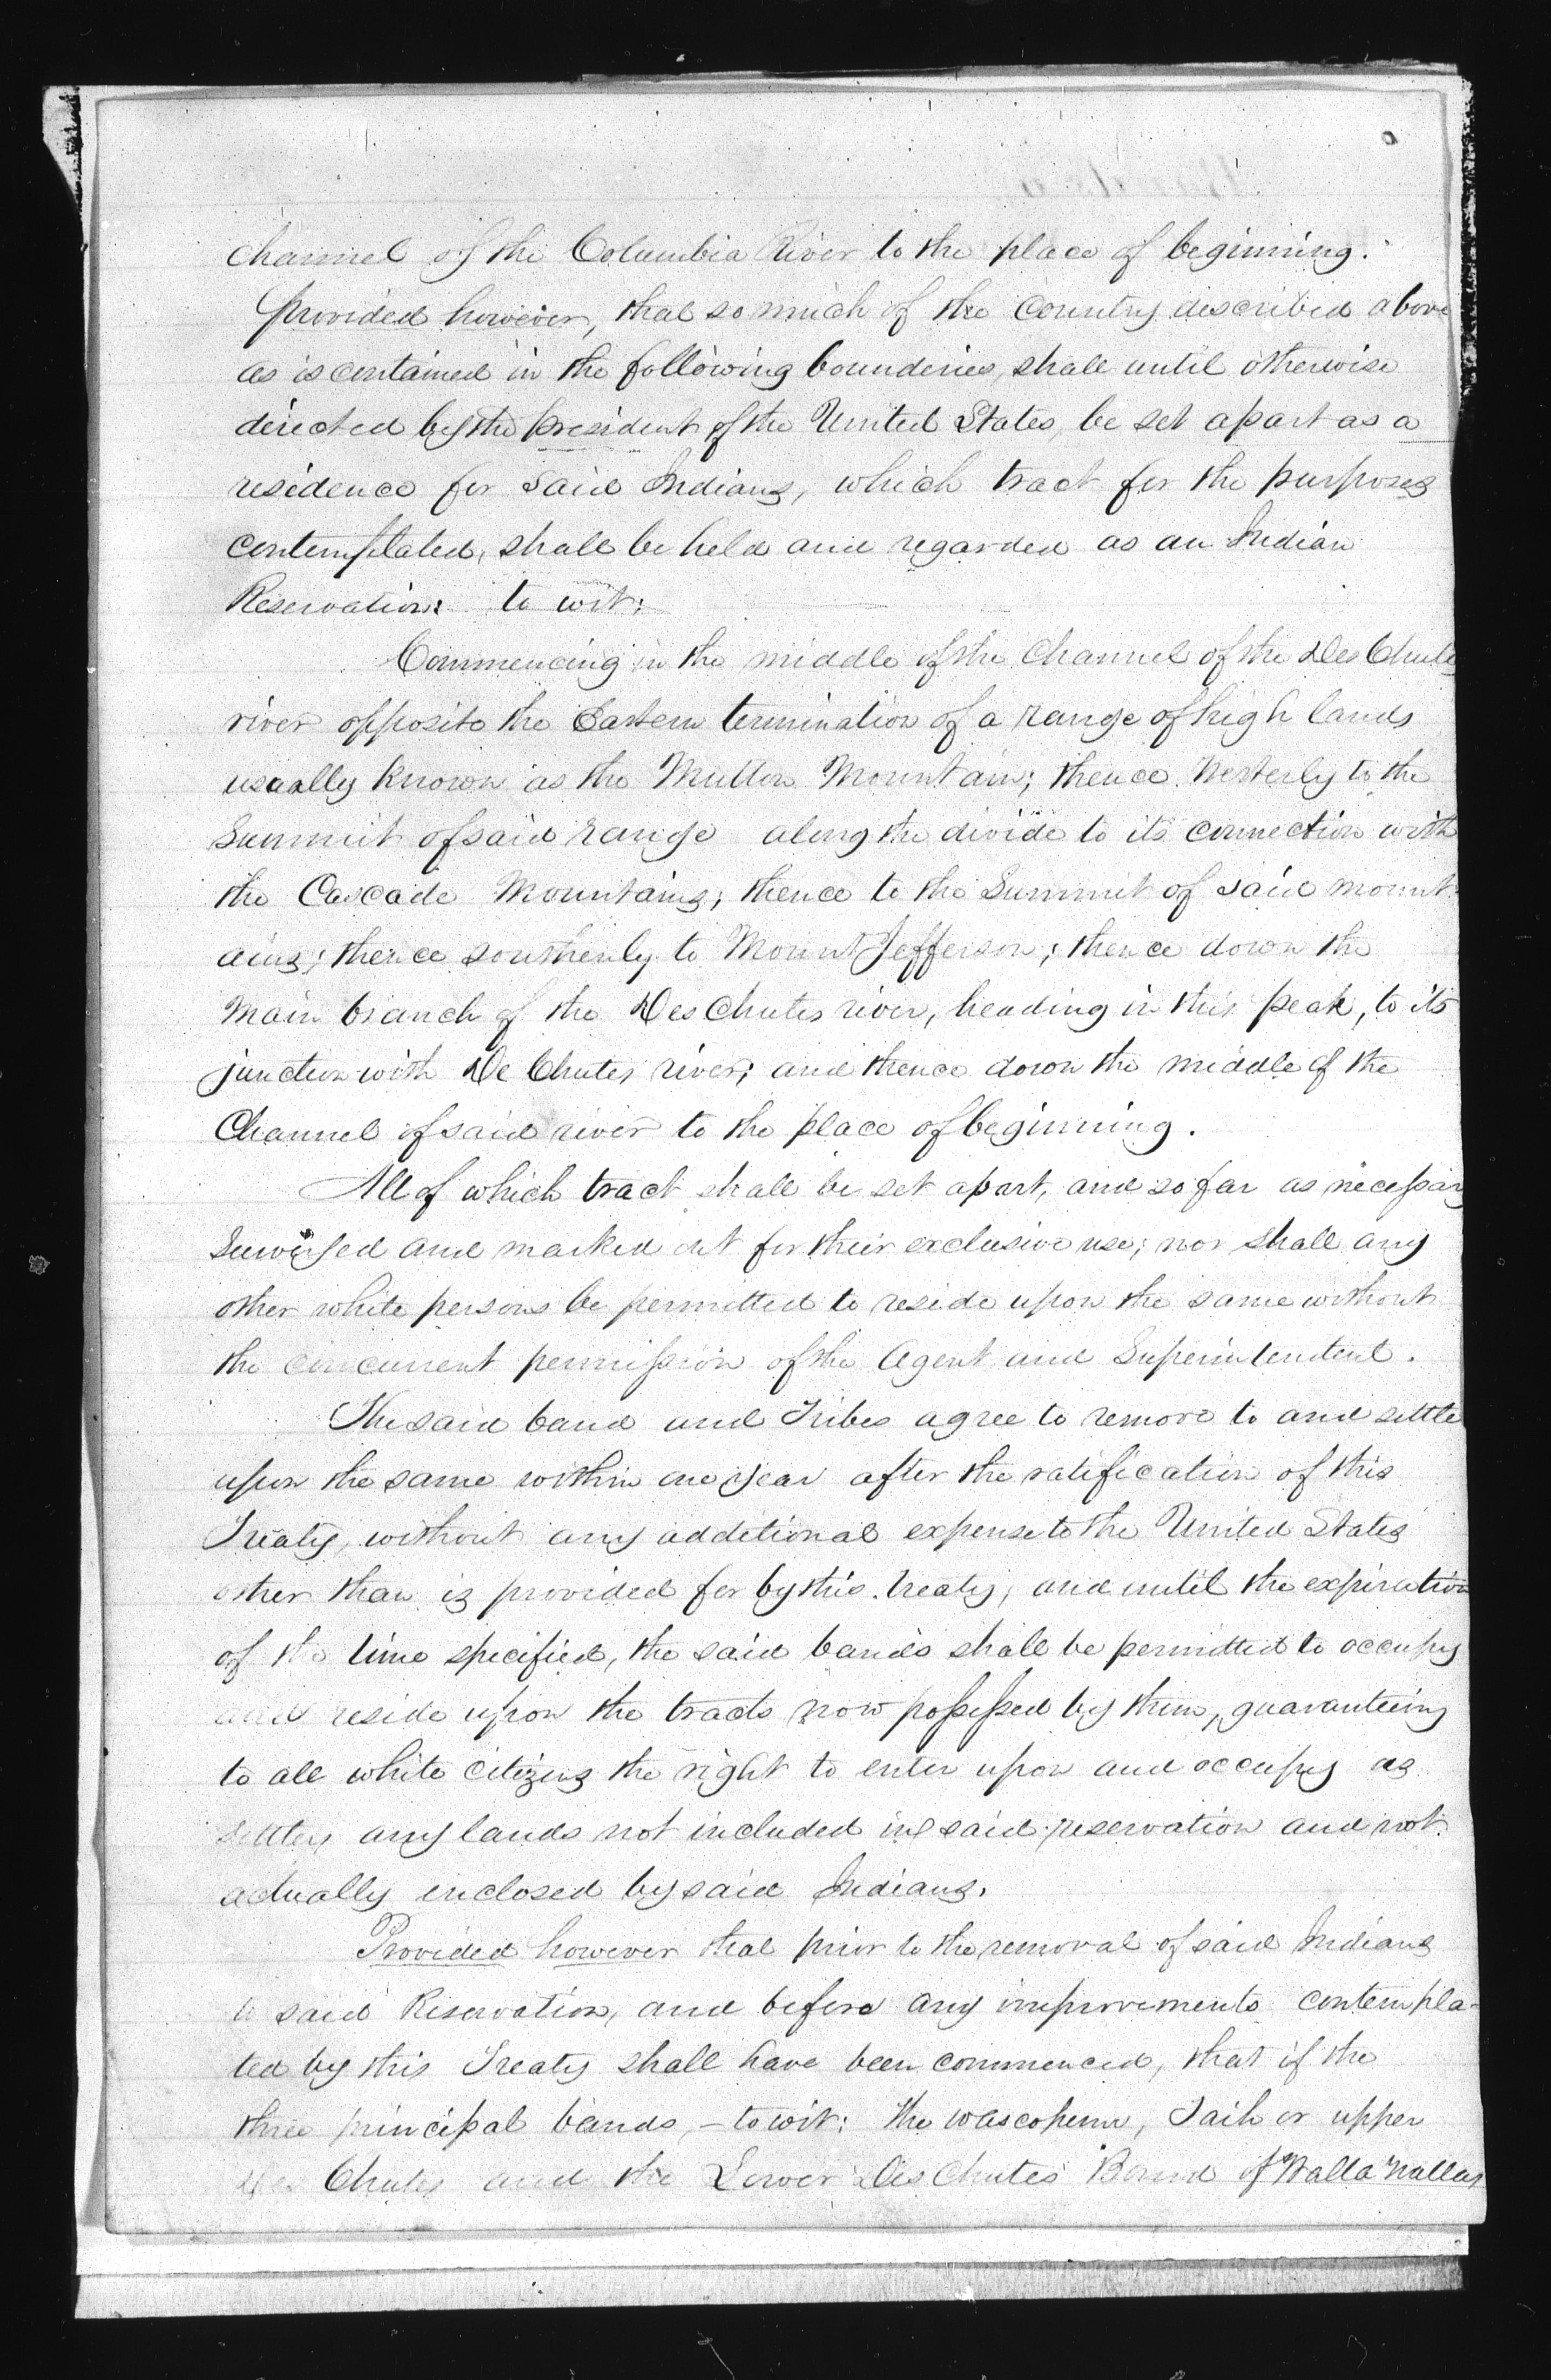 channel of the Columbia River to the place of beginning.
provided however, that so much of the Country described above
as is contained in the following bounderies, shall until otherwise
directed by the president of the United States, be set apart as a
residence for said Indians, which tract for the purposes
contemplated, shall be held and regarded as an Indian
Reservation: to wit:
Commencing in the middle of the Channel of the Des Chutes
river opposite the Eastern termination of a range of high lands
usually known as the Mutton Mountain; thence Westerly to the
Summit of said range along the divide to its connection with
the Cascade Mountains; thence to the Summit of said mount-
ains; thence southerly to Mount Jefferson; thence down the
Main branch of the Des Chutes river, heading in this peak, to its
junction with De Chutes river; and thence down the middle of the
Channel of said river to the place of beginning.
All of which tract shall be set apart, and so far as necessary
Surveyed and marked out for their exclusive use; nor shall any
other white persons be permitted to reside upon the same without
the concurrent permission of the Agent and Superintendent.
The said band and Tribes agree to remove to and settle
upon the same within one year after the ratification of this
Treaty, without any additional expense to the United States
other than is provided for by this treaty; and until the expiration
of the time specified, the said bands shall be permitted to occupy
and reside upon the tracts now possessed by them, guaranteeing
to all white citizens the right to enter upon and occupy as
settlers any lands not included in said reservation and not
actually enclosed by said Indians.
Provided however that prior to the removal of said Indians
to said Reservation, and before any improvements contempla-
ted by this Treaty shall have been commenced, that if the
three principal bands, - to wit: the Wascopum, Taih or upper
Des Chutes and the Lower Des Chutes Band of Walla Wallas